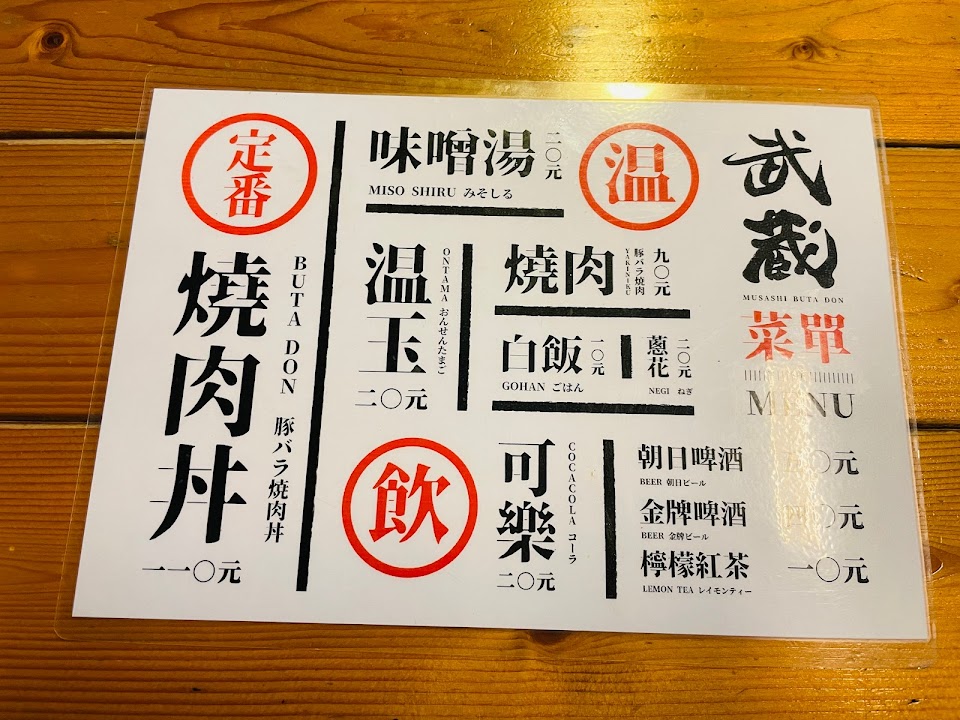 武蔵
MUSASHI BUTA DON
菜單
MENU
定番
燒肉丼
BUTA DON 豚バラ燒肉丼
一一〇元
温
味噌湯
二〇元
MISO SHIRU みそしる
温玉
ONTAMA おんせんたまご
二〇元
燒肉
豚バラ燒肉
YAKINIKU
九〇元
白飯
一〇元
GOHAN ごはん
蔥花
二〇元
NEGI ねぎ
飲
可樂
COCACOLA コーラ
二〇元
朝日啤酒
〇元
BEER 朝日ビール
金牌啤酒 四〇元
BEER 金牌ビール
檸檬紅茶 一〇元
LEMON TEA レイモンティー